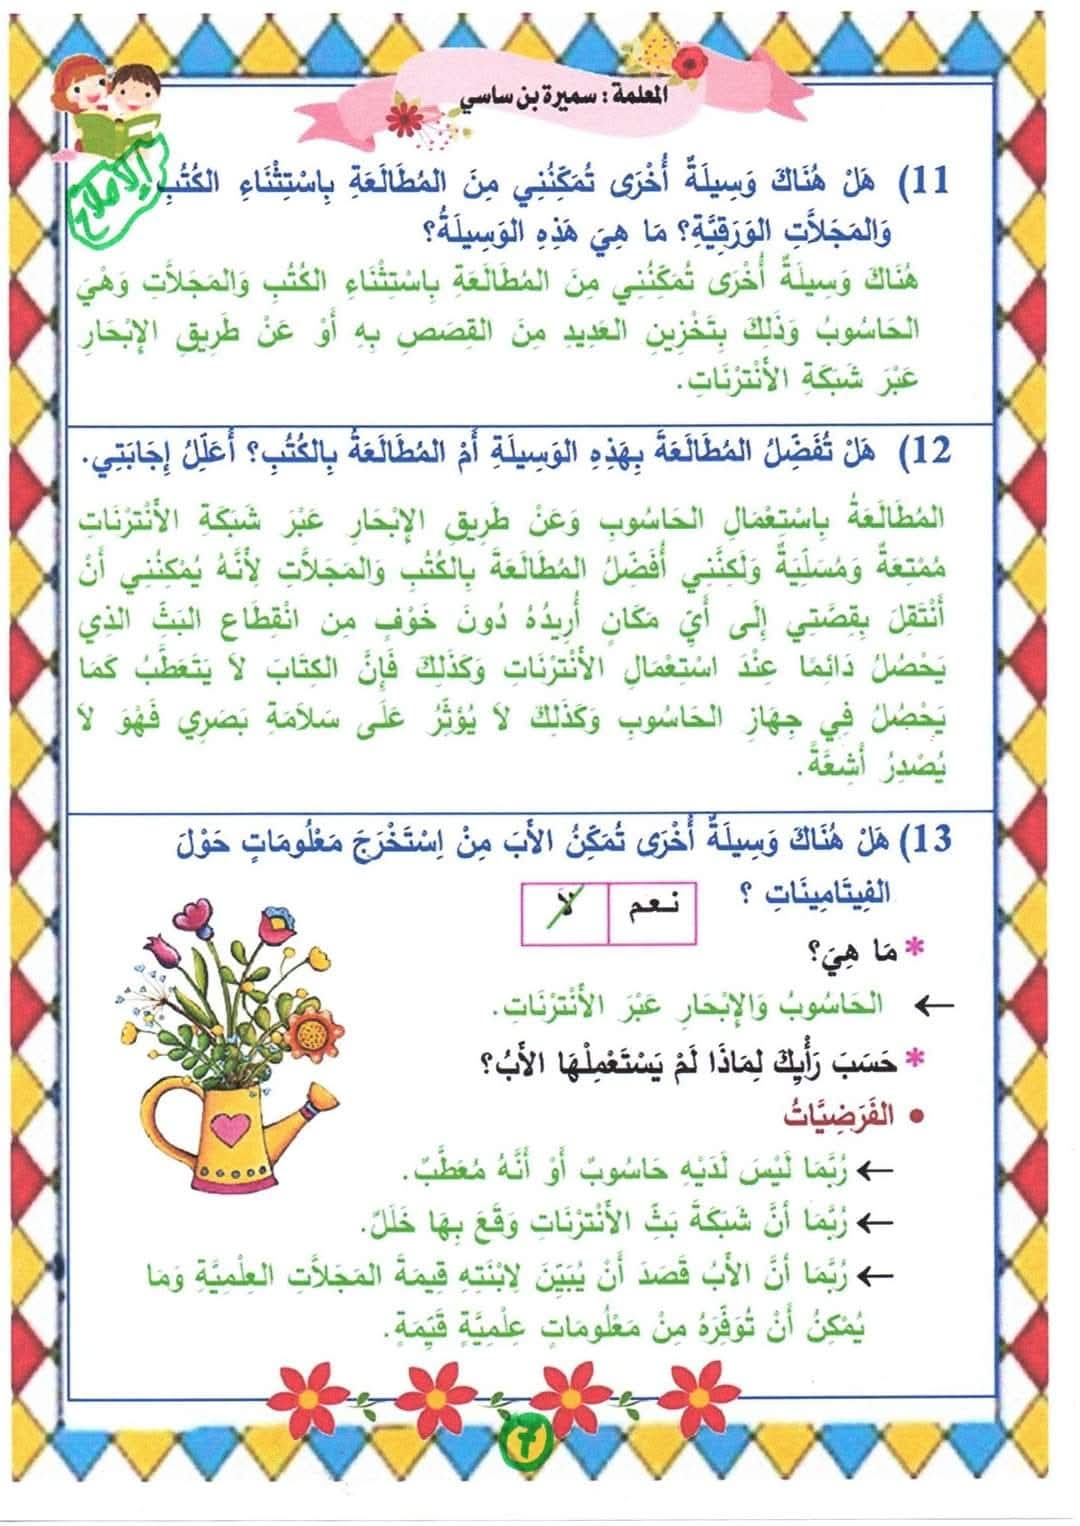 المعلمة : سميرة بن ساسي
الإصلاح
11) هَلْ هُنَاكَ وَسِيلَةٌ أُخْرَى تُمَكِّنُنِي مِنَ المُطَالَعَةِ بِاسْتِثْنَاءِ الكُتُبِ
وَالمَجَلاَّتِ الوَرَقِيَّةِ؟ مَا هِيَ هَذِهِ الوَسِيلَةُ؟
هُنَاكَ وَسِيلَةٌ أُخْرَى تُمَكِّنُنِي مِنَ المُطَالَعَةِ بِاسْتِثْنَاءِ الكُتُبِ وَالمَجَلاَّتِ وَهْيَ
الحَاسُوبُ وَذَلِكَ بِتَخْزِينِ العَدِيدِ مِنَ القِصَصِ بِهِ أَوْ عَنْ طَرِيقِ الإِبْحَارِ
عَبْرَ شَبَكَةِ الأَنْتَرْنَاتِ.
12) هَلْ تُفَضِّلُ المُطَالَعَةَ بِهَذِهِ الوَسِيلَةِ أَمْ المُطَالَعَةُ بِالكُتُبِ؟ أُعَلِّلُ إِجَابَتِي.
المُطَالَعَةُ بِاسْتِعْمَالِ الحَاسُوبِ وَعَنْ طَرِيقِ الإِبْحَارِ عَبْرَ شَبَكَةِ الأَنْتَرْنَاتِ
مُمْتِعَةٌ وَمُسَلِّيَةٌ وَلَكِنَّنِي أُفَضِّلُ المُطَالَعَةَ بِالكُتُبِ وَالمَجَلاَّتِ لِأَنَّهُ يُمْكِنُنِي أَنْ
أَنْتَقِلَ بِقِصَّتِي إِلَى أَيِّ مَكَانٍ أُرِيدُهُ دُونَ خَوْفٍ مِن انْقِطَاعِ البَثِّ الذِي
يَحْصُلُ دَائِمًا عِنْدَ اسْتِعْمَالِ الأَنْتَرْنَاتِ وَكَذَلِكَ فَإِنَّ الكِتَابَ لاَ يَتَعَطَّبُ كَمَا
يَحْصُلُ فِي جِهَازِ الحَاسُوبِ وَكَذَلِكَ لاَ يُؤَثِّرُ عَلَى سَلاَمَةِ بَصَرِي فَهْوَ لاَ
يُصْدِرُ أَشِعَّةً.
13) هَلْ هُنَاكَ وَسِيلَةٌ أُخْرَى تُمَكِّنُ الأَبَ مِنْ اِسْتَخْرَجَ مَعْلُومَاتٍ حَوْلَ
الفِيتَامِينَاتِ ؟
نعم لاَ
* مَا هِيَ؟
← الحَاسُوبُ وَالإِبْحَارِ عَبْرَ الأَنْتَرْنَاتِ.
* حَسَبَ رَأْيِكَ لِمَاذَا لَمْ يَسْتَعْمِلْهَا الأَبُ؟
• الفَرَضِيَّاتُ
← رُبَّمَا لَيْسَ لَدَيْهِ حَاسُوبٌ أَوْ أَنَّهُ مُعَطَّبٌ.
← رُبَّمَا أَنَّ شَبَكَةَ بَثِّ الأَنْتَرْنَاتِ وَقَعَ بِهَا خَلَلٌ.
← رُبَّمَا أَنَّ الأَبُ قَصَدَ أَنْ يُبَيِّنَ لِابْنَتِهِ قِيمَةَ المَجَلاَّتِ العِلْمِيَّةِ وَمَا
يُمْكِنُ أَنْ تُوَفِّرَهُ مِنْ مَعْلُومَاتٍ عِلْمِيَّةٍ قَيِّمَةٍ.
7